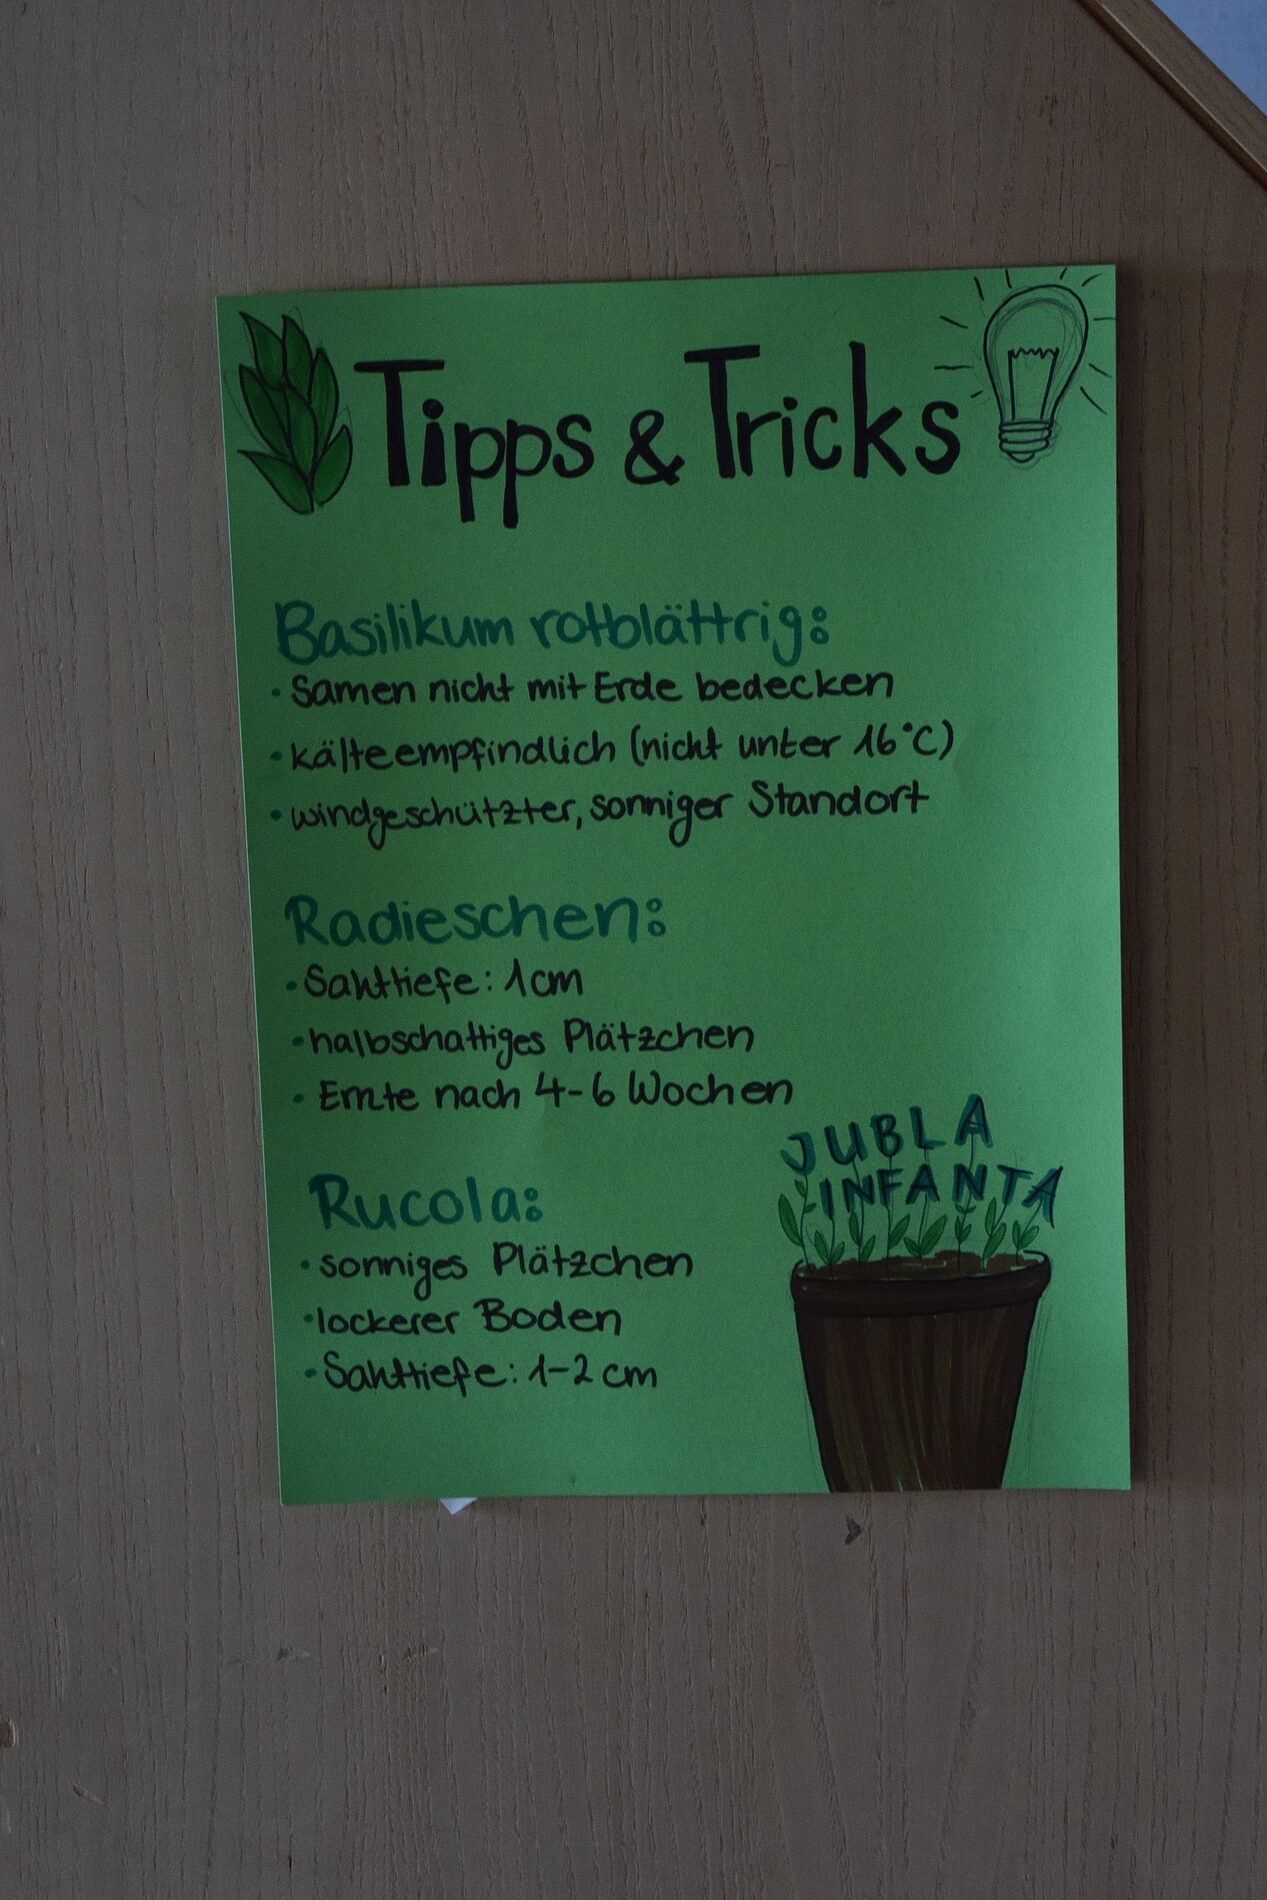 Tipps & Tricks
Basilikum rotblättrig:
• Samen nicht mit Erde bedecken
• kälteempfindlich (nicht unter 16°C)
• windgeschützter, sonniger Standort
Radieschen:
• Sahttiefe: 1cm
• halbschattiges Plätzchen
• Ernte nach 4-6 Wochen
Rucola:
• sonniges Plätzchen
• lockerer Boden
• Sahttiefe: 1-2 cm
JUBLA
INFANTA